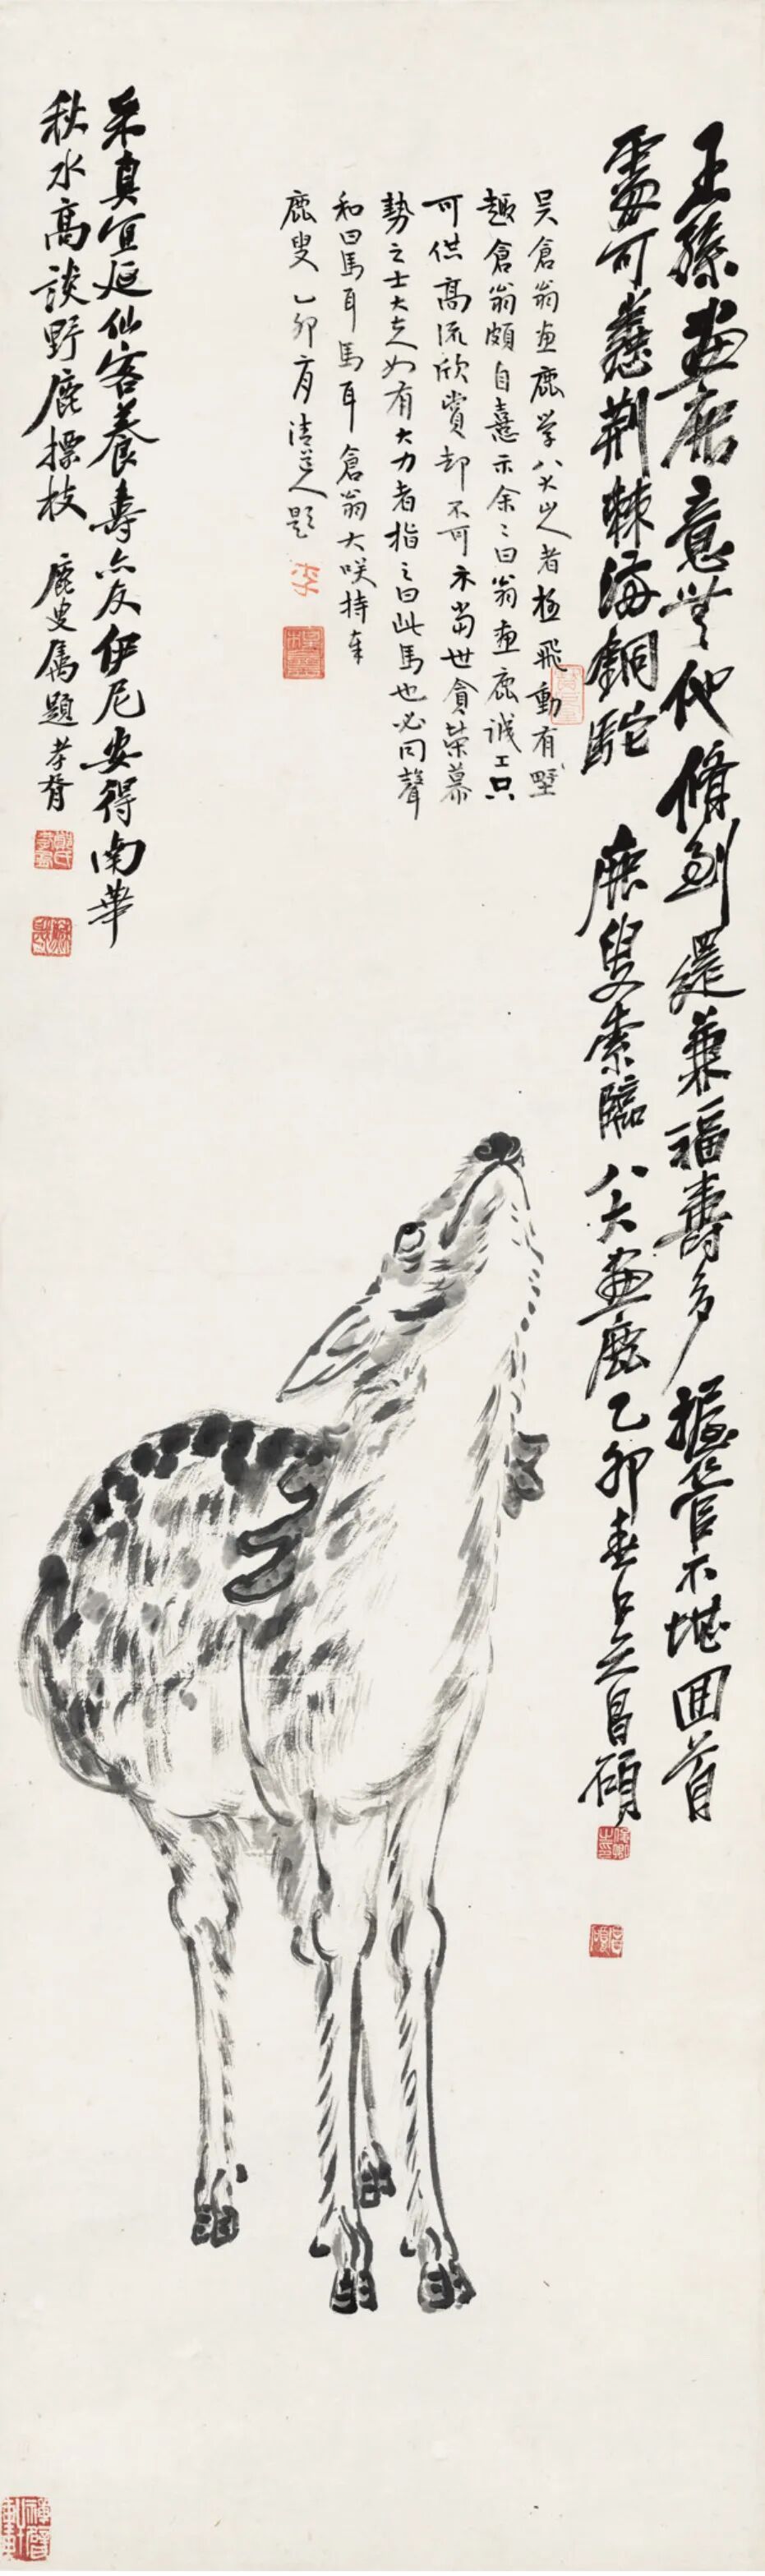 王孫畫鹿意無他脩到還兼福壽多握管不堪回首
處可憐荆棘海銅駝 鹿叟索臨八大畫鹿乙卯春吳昌碩
吴倉翁畫鹿學八大山人者極飛動有野
趣倉翁頗自憙示余余曰翁畫鹿誠工只
可供高流欣賞却不可示當世貪榮慕
勢之士大夫如有大力者指之曰此馬也必同聲
和曰馬耳馬耳倉翁大咲持奉
鹿叟 乙卯 清道人題
李
采真宜延仙客養壽亦友伊尼安得南華
秋水高談野鹿摽枝 鹿叟屬題 孝胥